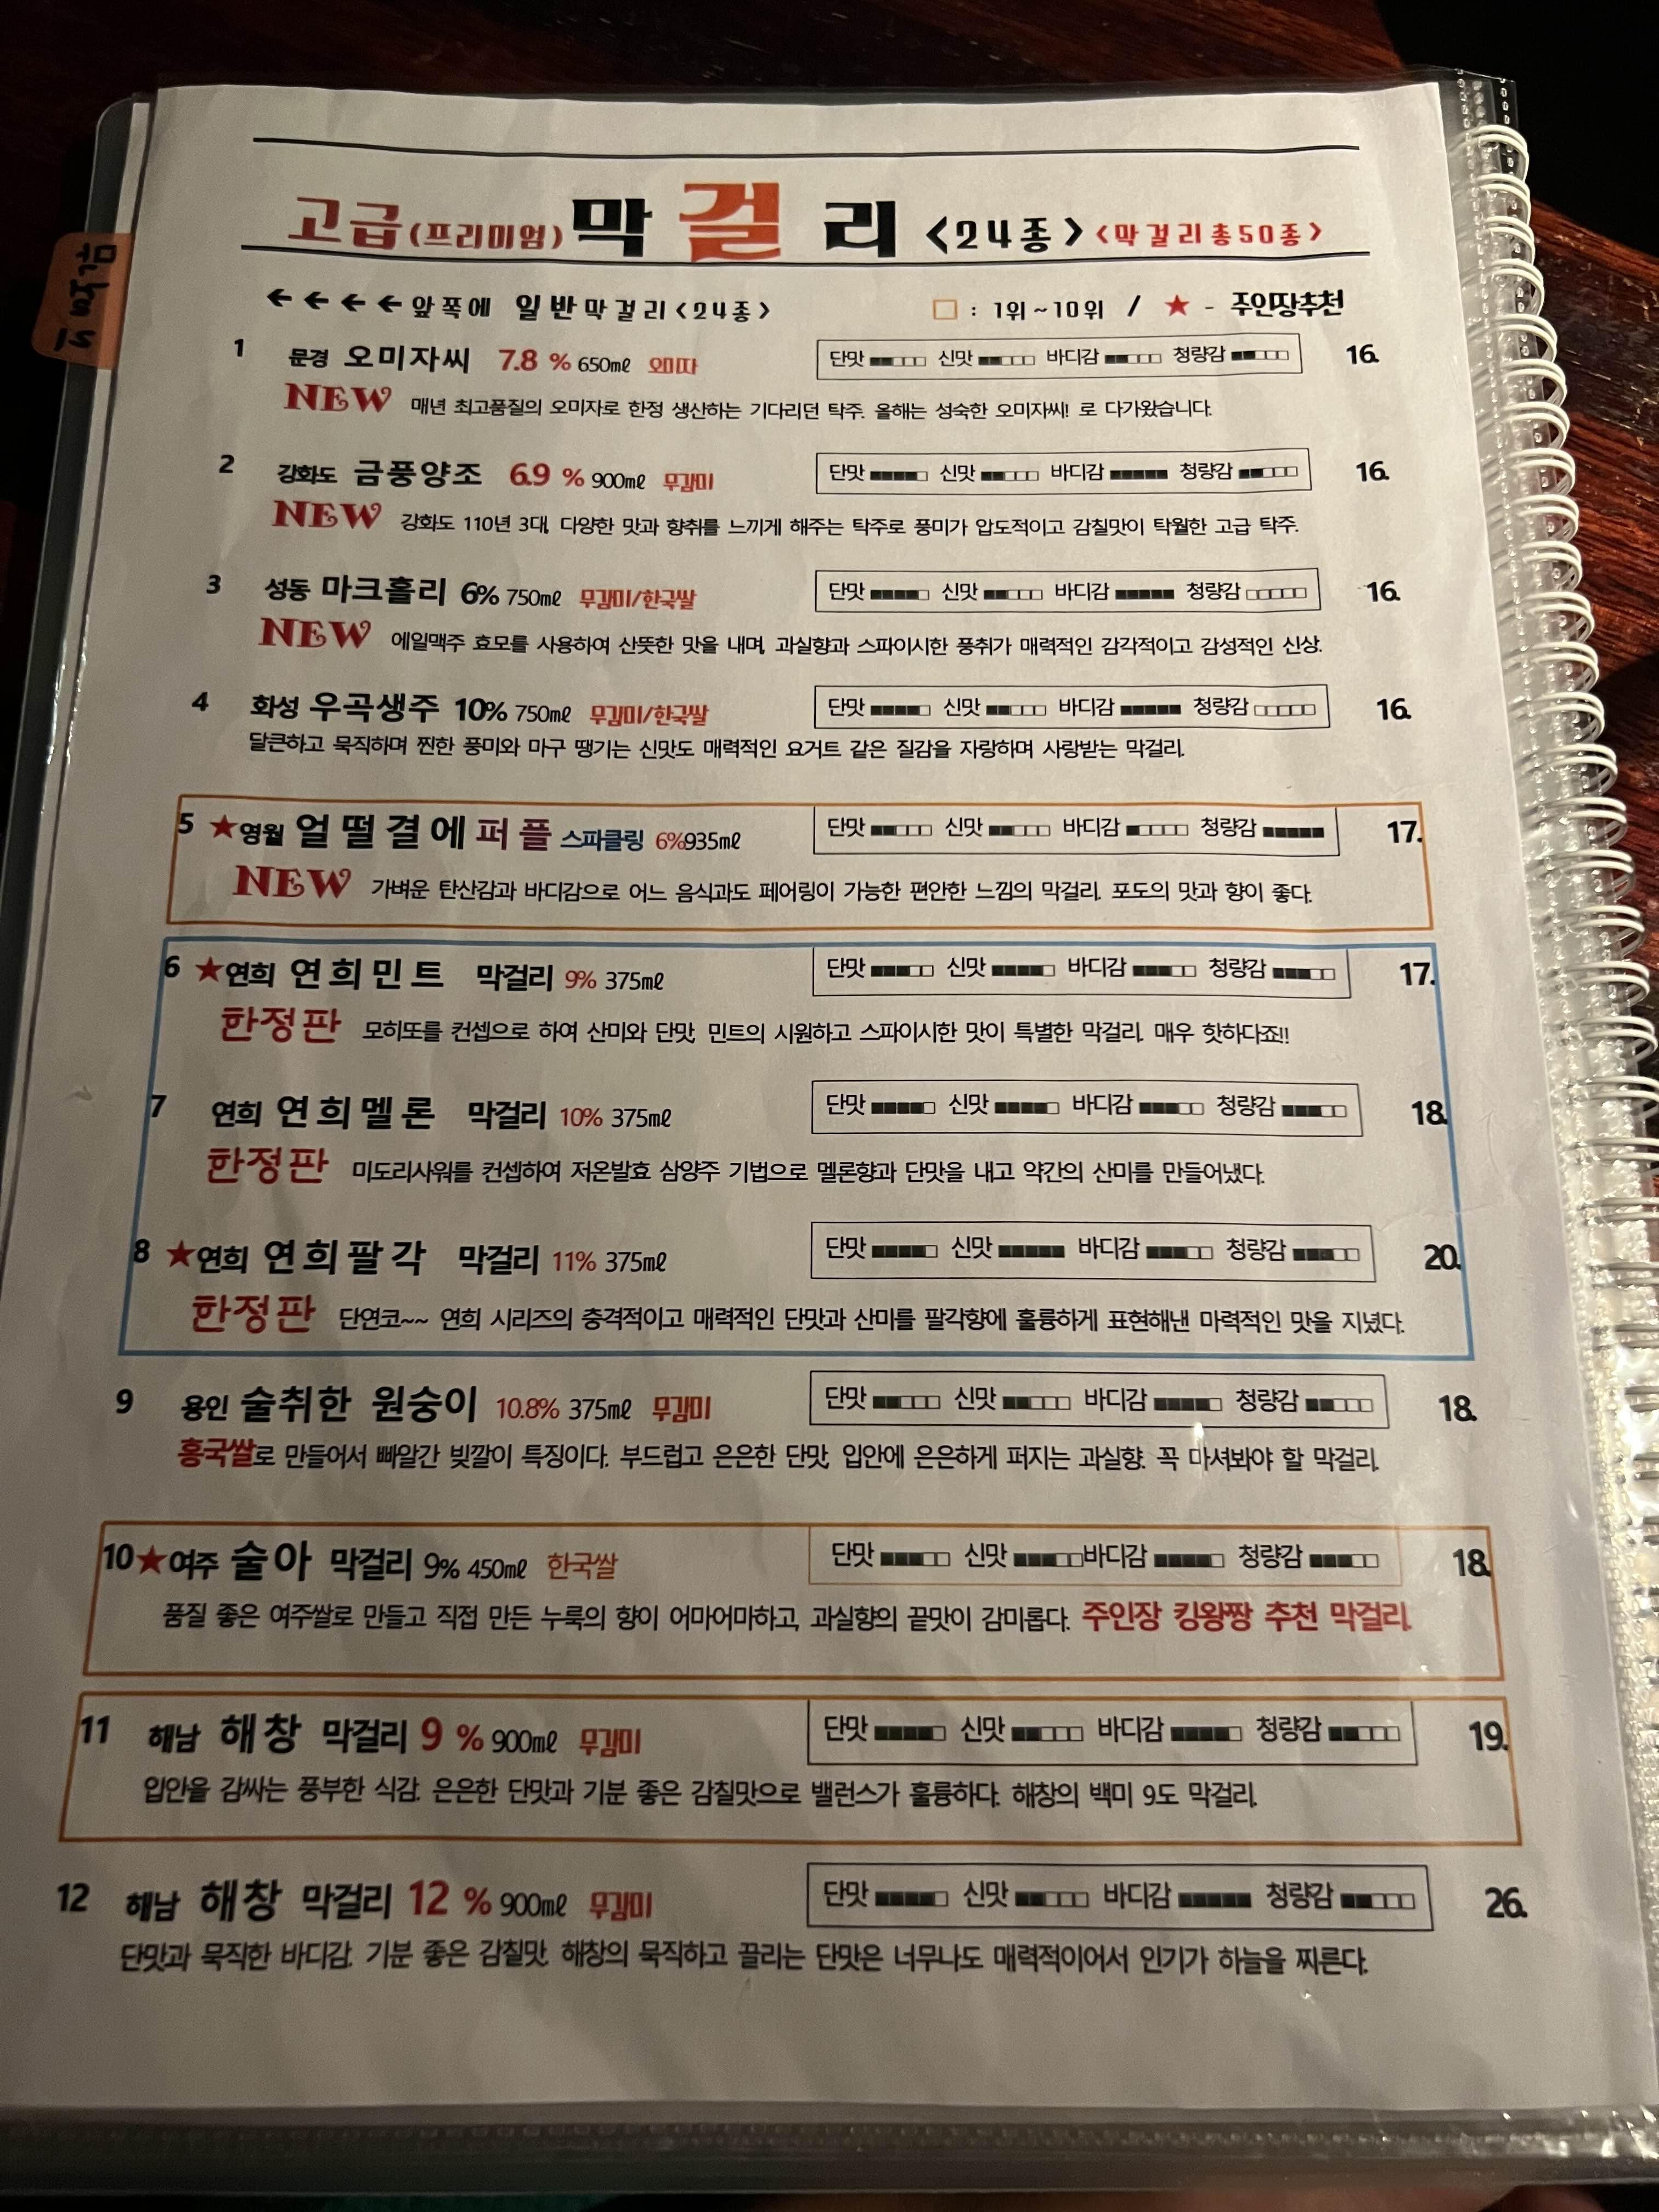 고급(프리미엄) 막걸리 <24종> <막걸리총50종>
←←←← 앞쪽에 일반막걸리<24종> □ : 1위~10위 / ★ - 주인장추천
1 문경 오미자씨 7.8 % 650㎖ 오미자 단맛 ■■□□□ 신맛 ■■□□□ 바디감 ■■□□□ 청량감 ■■□□□ 16.
NEW 매년 최고품질의 오미자로 한정 생산하는 기다리던 탁주. 올해는 성숙한 오미자씨! 로 다가왔습니다.
2 강화도 금풍양조 6.9 % 900㎖ 무감미 단맛 ■■■■□ 신맛 ■■□□□ 바디감 ■■■■■ 청량감 ■■□□□ 16.
NEW 강화도 110년 3대, 다양한 맛과 향취를 느끼게 해주는 탁주로 풍미가 압도적이고 감칠맛이 탁월한 고급 탁주.
3 성동 마크홀리 6% 750㎖ 무감미/한국쌀 단맛 ■■■■□ 신맛 ■■□□□ 바디감 ■■■■■ 청량감 □□□□□ 16.
NEW 에일맥주 효모를 사용하여 산뜻한 맛을 내며, 과실향과 스파이시한 풍취가 매력적인 감각적이고 감성적인 신상.
4 화성 우곡생주 10% 750㎖ 무감미/한국쌀 단맛 ■■■■□ 신맛 ■■□□□ 바디감 ■■■■■ 청량감 □□□□□ 16.
달큰하고 묵직하며 찐한 풍미와 마구 땡기는 신맛도 매력적인 요거트 같은 질감을 자랑하며 사랑받는 막걸리.
5 ★영월 얼떨결에퍼플 스파클링 6%935㎖ 단맛 ■■□□□ 신맛 ■■□□□ 바디감 ■□□□□ 청량감 ■■■■■ 17.
NEW 가벼운 탄산감과 바디감으로 어느 음식과도 페어링이 가능한 편안한 느낌의 막걸리. 포도의 맛과 향이 좋다.
6 ★연희 연희민트 막걸리 9% 375㎖ 단맛 ■■■□□ 신맛 ■■■■□ 바디감 ■■■□□ 청량감 ■■■□□ 17.
한정판 모히또를 컨셉으로 하여 산미와 단맛, 민트의 시원하고 스파이시한 맛이 특별한 막걸리. 매우 핫하다죠!!
7 연희 연희멜론 막걸리 10% 375㎖ 단맛 ■■■■□ 신맛 ■■■■□ 바디감 ■■■□□ 청량감 ■■■□□ 18.
한정판 미도리사워를 컨셉하여 저온발효 삼양주 기법으로 멜론향과 단맛을 내고 약간의 산미를 만들어냈다.
8 ★연희 연희팔각 막걸리 11% 375㎖ 단맛 ■■■■□ 신맛 ■■■■■ 바디감 ■■■□□ 청량감 ■■■□□ 20.
한정판 단연코~~ 연희 시리즈의 충격적이고 매력적인 단맛과 산미를 팔각향에 훌륭하게 표현해낸 마력적인 맛을 지녔다.
9 용인 술취한 원숭이 10.8% 375㎖ 무감미 단맛 ■■□□□ 신맛 ■■□□□ 바디감 ■■■■□ 청량감 ■■□□□ 18.
홍국쌀로 만들어서 빠알간 빛깔이 특징이다. 부드럽고 은은한 단맛, 입안에 은은하게 퍼지는 과실향. 꼭 마셔봐야 할 막걸리.
10★여주 술아 막걸리 9% 450㎖ 한국쌀 단맛 ■■■□□ 신맛 ■■■□□바디감 ■■■■□ 청량감 ■■■□□ 18.
품질 좋은 여주쌀로 만들고 직접 만든 누룩의 향이 어마어마하고, 과실향의 끝맛이 감미롭다. 주인장 킹왕짱 추천 막걸리.
11 해남 해창 막걸리 9 % 900㎖ 무감미 단맛 ■■■■□ 신맛 ■■□□□ 바디감 ■■■■□ 청량감 ■■□□□ 19.
입안을 감싸는 풍부한 식감. 은은한 단맛과 기분 좋은 감칠맛으로 밸런스가 훌륭하다. 해창의 백미 9도 막걸리.
12 해남 해창 막걸리 12 % 900㎖ 무감미 단맛 ■■■■□ 신맛 ■■□□□ 바디감 ■■■■■ 청량감 ■■□□□ 26.
단맛과 묵직한 바디감. 기분 좋은 감칠맛. 해창의 묵직하고 끌리는 단맛은 너무나도 매력적이어서 인기가 하늘을 찌른다.